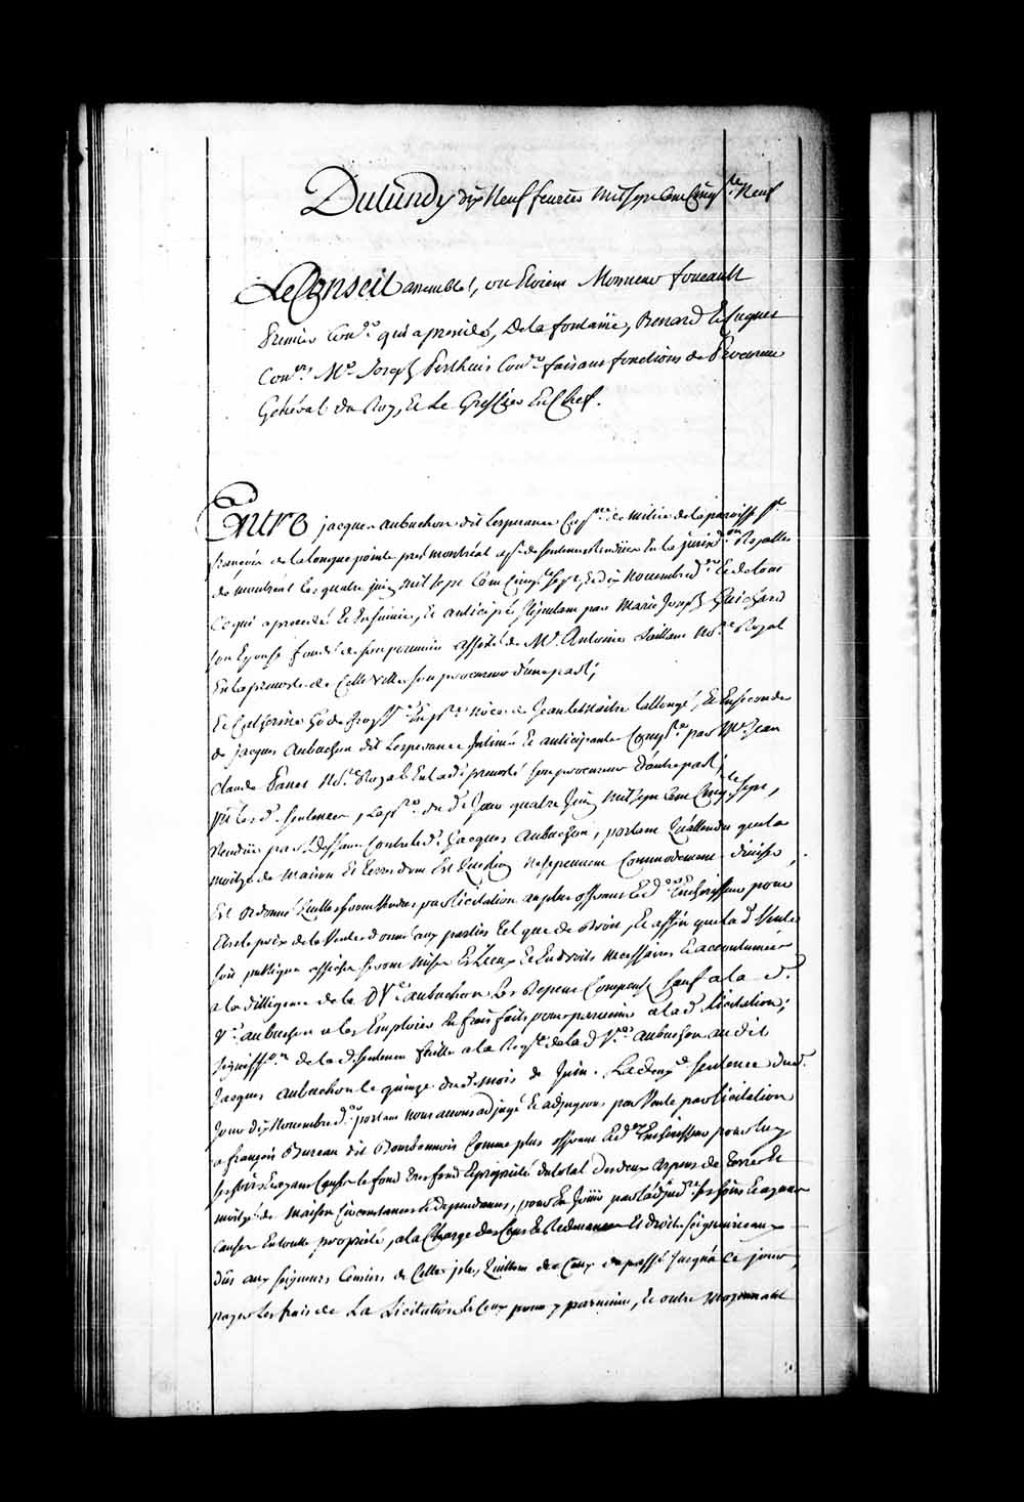 Du lundy dix Neuf feurier mil sept Cent Cinq.te Neuf
Le Conseil assemblé, ou Etoient Monsieur foucault
Premier Con.er qui a presidé, De la fontaine, Benard et Cugnet
Con.ers M.e Joseph Perthuis Con.er faisant fonctions de Procureur
Général du Roy, Et le Greffier En Chef.
Entre jacques aubuchon dit Lesperance Cap.ne de milice de la paroisse S.t
françois de la longue pointe pres montréal ap.t de sentence Rendüe En la jurisd.on Royalle
de montréal les quatre juin mil sept Cent Cinq.te sept, et dix Nouembre d.er Et de tout
Ce qui a precedé Et Ensuivie, Et anticipé, stipulant par Marie Joseph Guichard
son Epouse fondé de son pouuoir assisté de M.e Antoine Saillant No.re Royal
En la preuosté de Cette Ville son procureur d'une part;
Et Catherine Ve de Jean le Maitre Lallongé, Et En secondes
de jacques Aubuchon dit Lesperance Intimée Et anticipante Comp.te par M.e Jean
Claude Panet No.re Royal En lad.e preuosté son procureur d'autre part;
Vu les d. sentences, La p.re du d. Jour quatre Juin mil sept Cent Cinq.te sept,
Rendüe par deffaut Contre led. Jacques Aubuchon, portant qu'attendu que la
moitié de maison Et Terre dont Est question Ne se peuvent Commodement diviser,
Est ordonné qu'elles seront Vendues par licitation au plus offrant Et d.er Encherisseur pour
Etre le prix de la Vente donné aux parties tel que de Droit, Et affin que la d. Vente
soit publique affiches seront mises Es Lieux Et Endroits necessaires Et accoutumés
a la dilligence de la D.e V.e aubuchon Les Depens Compensés sauf a la d.e
V.e aubuchon a les Employer En frais faits pour parvenir a la d. licitation;
signiff.on de la d. sentence faitte a la Req.te de la d. V.e aubuchon au dit
Jacques aubuchon le quinze du d. mois de Juin. La deux.e sentence du d.
Jour dix Nouembre d.er portant nous auons adjugé Et adjugeons par Vente par licitation
a françois Bureau dit Bourbonnois Comme plus offrant Et d.er Encherisseur pour luy
ses hoirs Et ayans Cause le fond tres fond Et proprieté du total des deux arpens de terre Et
moitié de Maison Circonstances Et dependances, pour En Jouir par l'adjud.re ses hoirs Et ayans
Cause En toutte proprieté, a la Charge des Cens Et Redevances Et droits seigneuriaux
dûs aux seigneurs Censiers de Cette isle, Quittes de Ceux du passé jusqu'a Ce jour,
payer Les frais de La Licitation Et Ceux pour y parvenir, Et outre moyennant